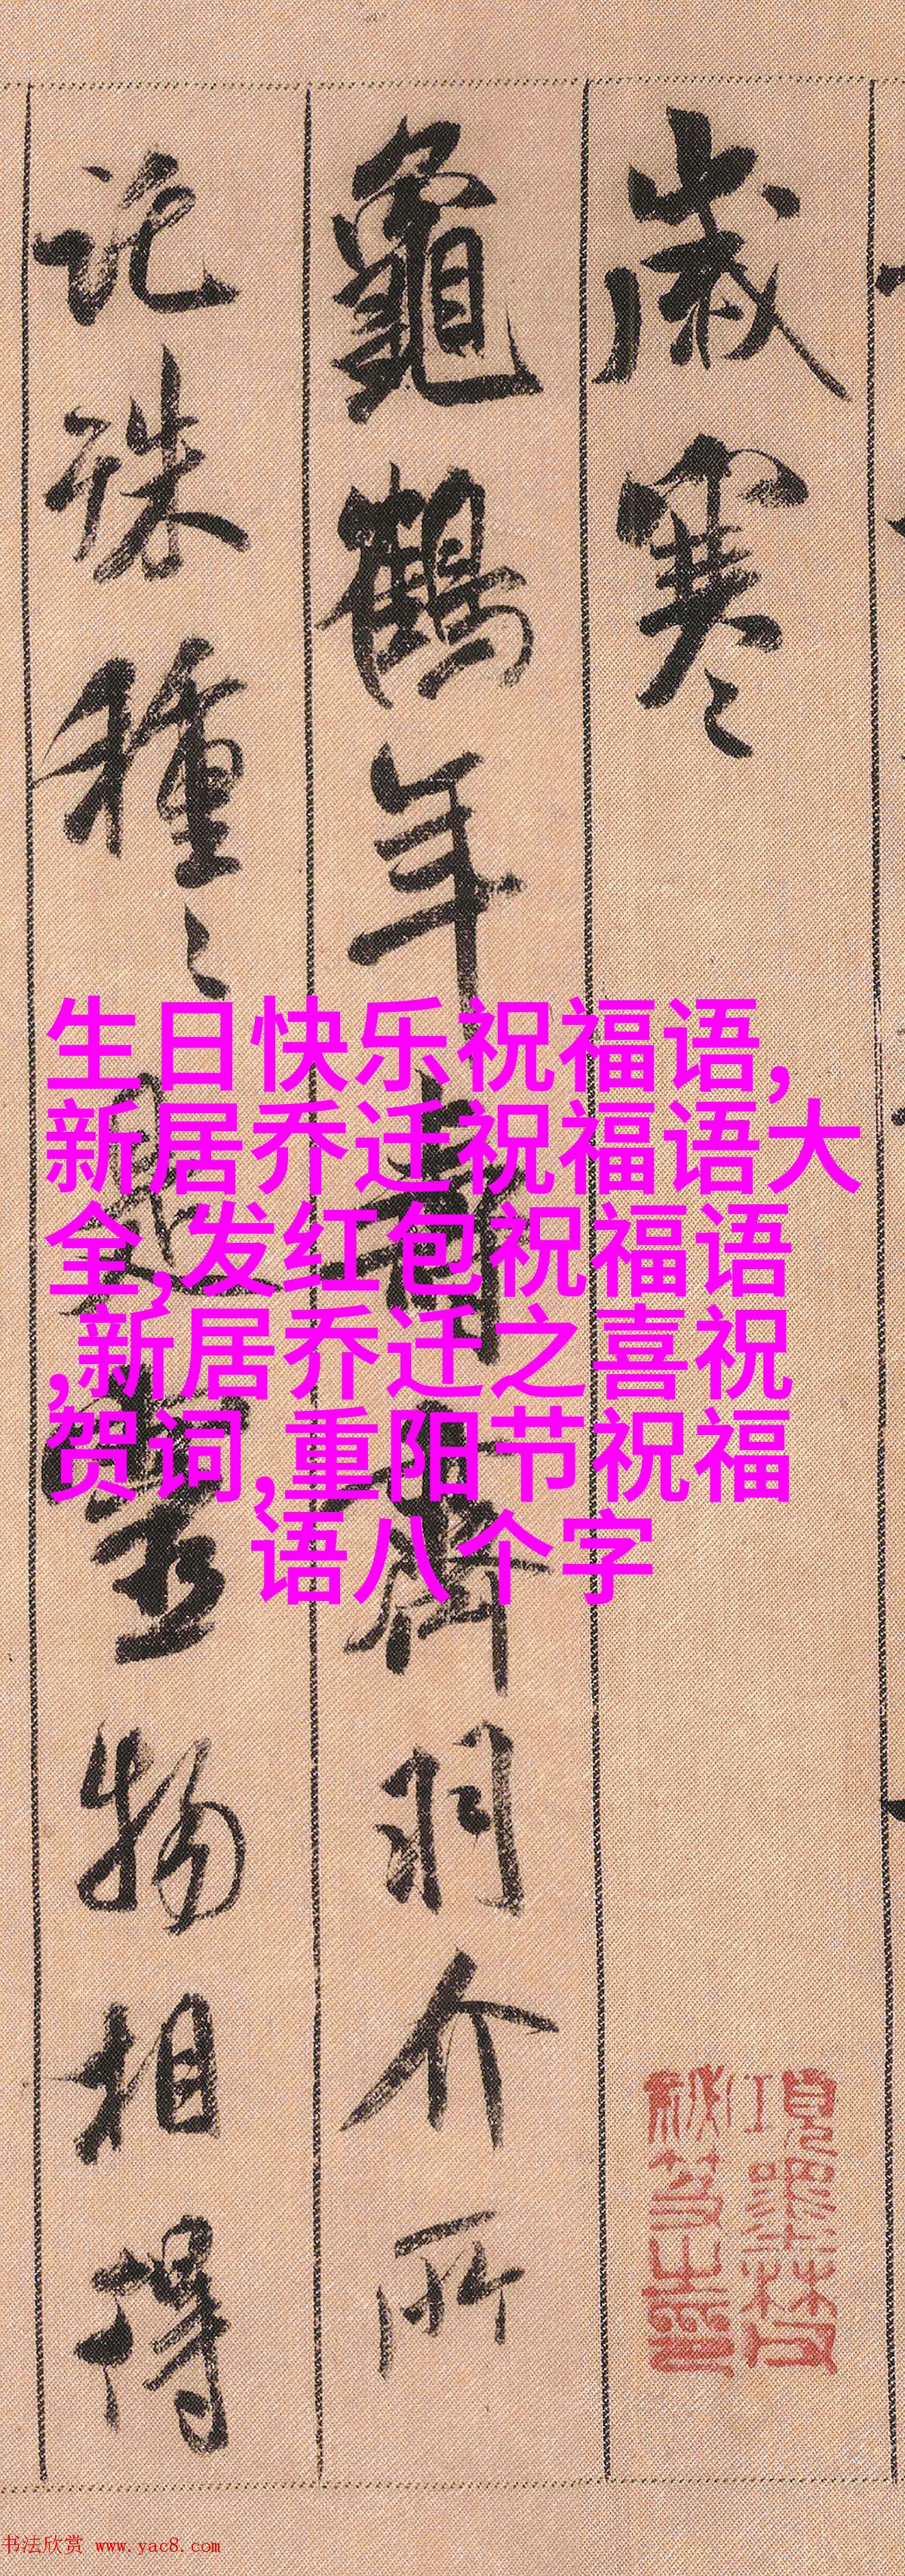 歲寒
龜鶴年壽齊羽介所
託殊種〻是靈物相得
生日快乐祝福语,
新居乔迁祝福语大
全,发红包祝福语
,新居乔迁之喜祝
贺词,重阳节祝福
语八个字
項墨林父
祕笈之印
书法欣赏 www.yac8.com